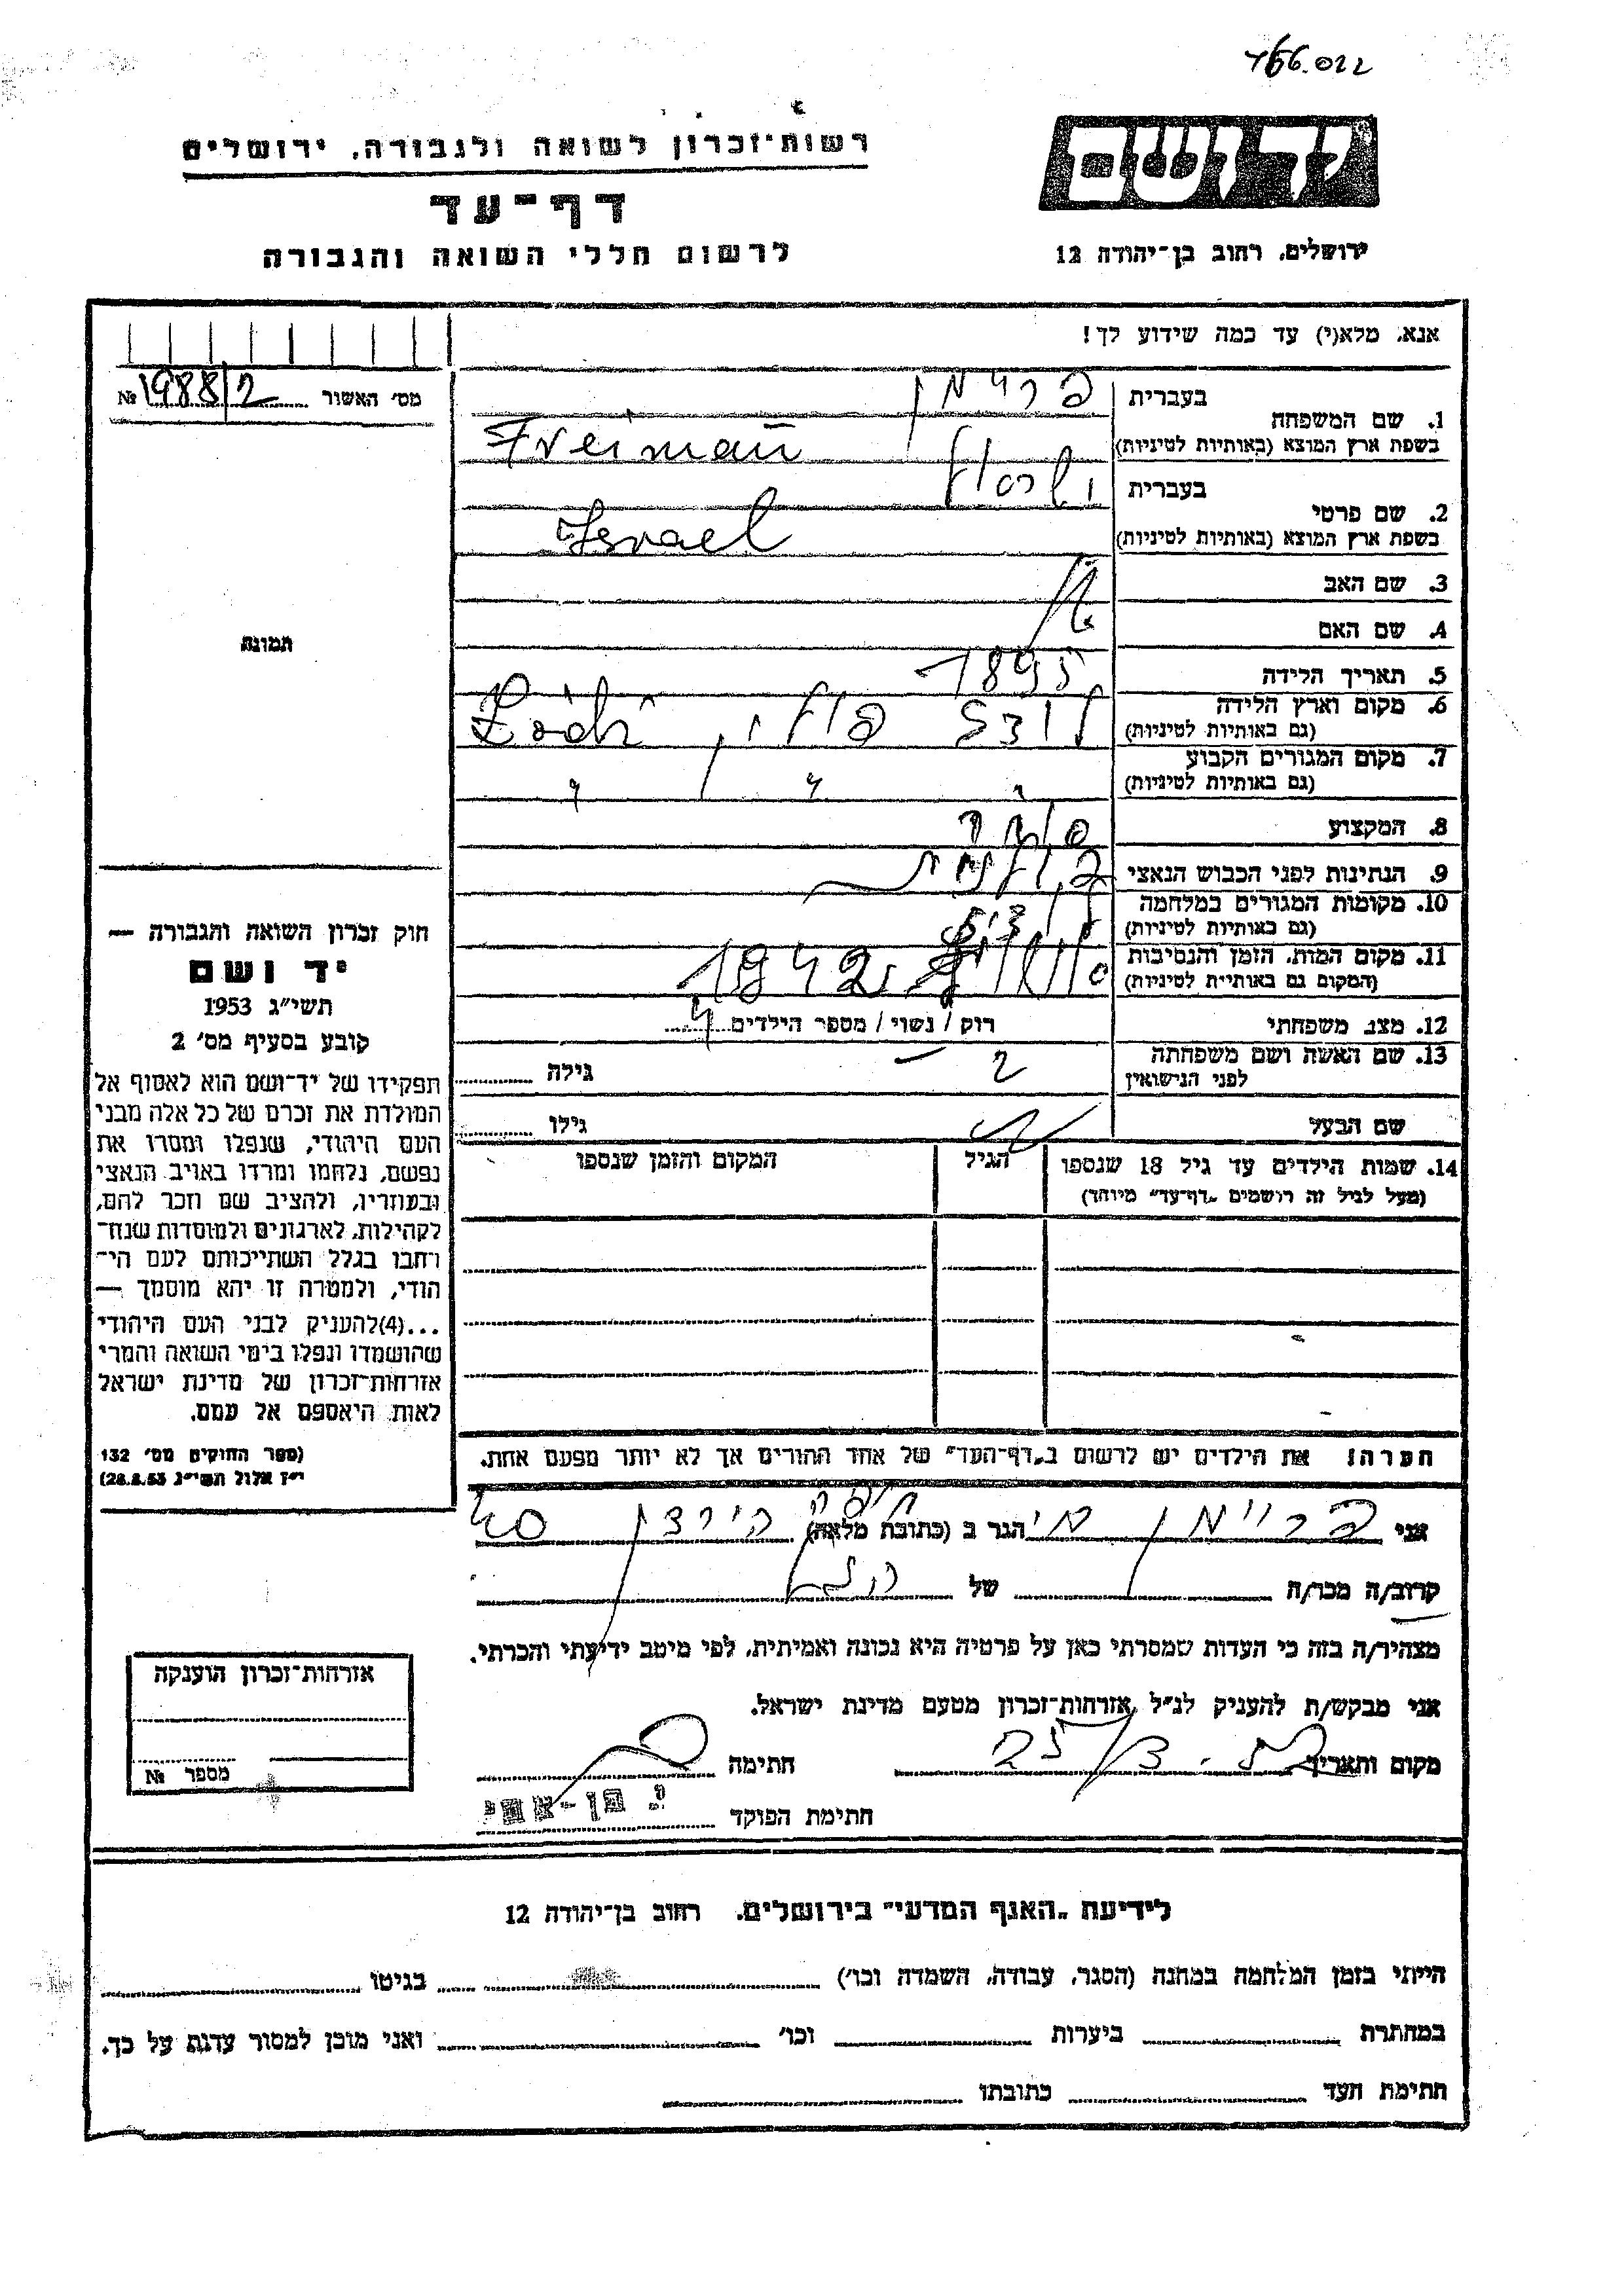 766.022
יד ושם
ירושלים, רחוב בן-יהודה 12
רשות-זכרון לשואה ולגבורה, ירושלים
דף-עד
לרשום חללי השואה והגבורה
אנא, מלא(י) עד כמה שידוע לך!
מס' האשור 1988/2 №
1. שם המשפחה
בעברית פריימן
בשפת ארץ המוצא (באותיות לטיניות) Freiman
2. שם פרטי
בעברית ישראל
בשפת ארץ המוצא (באותיות לטיניות) Israel
3. שם האב
4. שם האם
5. תאריך הלידה 1895
6. מקום וארץ הלידה
(גם באותיות לטיניות) לודז פולין Łodź
7. מקום המגורים הקבוע
(גם באותיות לטיניות) " " "
8. המקצוע סוחר
9. הנתינות לפני הכבוש הנאצי פולנית
10. מקומות המגורים במלחמה
(גם באותיות לטיניות)
11. מקום המות, הזמן והנסיבות
(המקום גם באותיות לטיניות) 1942
12. מצב משפחתי רוק / נשוי / מספר הילדים 4
13. שם האשה ושם משפחתה
לפני הנישואין
גילה
שם הבעל
גילו
14. שמות הילדים עד גיל 18 שנספו
(מעל לגיל זה רושמים "דף-עד" מיוחד)
הגיל
המקום והזמן שנספו
הערה! את הילדים יש לרשום ב"דף-העד" של אחד ההורים אך לא יותר מפעם אחת.
תמונה
חוק זכרון השואה והגבורה —
יד ושם
תשי"ג 1953
קובע בסעיף מס' 2
תפקידו של יד-ושם הוא לאסוף אל
המולדת את זכרם של כל אלה מבני
העם היהודי, שנפלו ומסרו את
נפשם, נלחמו ומרדו באויב הנאצי
ובעוזריו, ולהציב שם וזכר להם,
לקהילות, לארגונים ולמוסדות שנח-
רבו בגלל השתייכותם לעם הי-
הודי, ולמטרה זו יהא מוסמך —
...(4)להעניק לבני העם היהודי
שהושמדו ונפלו בימי השואה והמרי
אזרחות-זכרון של מדינת ישראל
לאות היאספם אל עמם.
(ספר החוקים מס' 132
י"ז אלול תשי"ג 28.8.53)
אני פריימן הגר ב (כתובת מלאה) חיפה הירדן
קרוב/ה מכר/ה של
מצהיר/ה בזה כי העדות שמסרתי כאן על פרטיה היא נכונה ואמיתית, לפי מיטב ידיעתי והכרתי.
אני מבקש/ת להעניק לנ"ל אזרחות-זכרון מטעם מדינת ישראל.
מקום ותאריך 25/3 חתימה
חתימת הפוקד
אזרחות-זכרון הוענקה
מספר №
לידיעת "האגף המדעי" בירושלים, רחוב בן-יהודה 12
הייתי בזמן המלחמה במחנה (הסגר, עבודה, השמדה וכו') בגיטו
במחתרת ביערות וכו' ואני מוכן למסור עדות על כך.
חתימת העד כתובתו